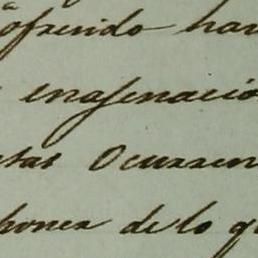 ofrendo han
enagenació
tas Ocurren
poner de lo q